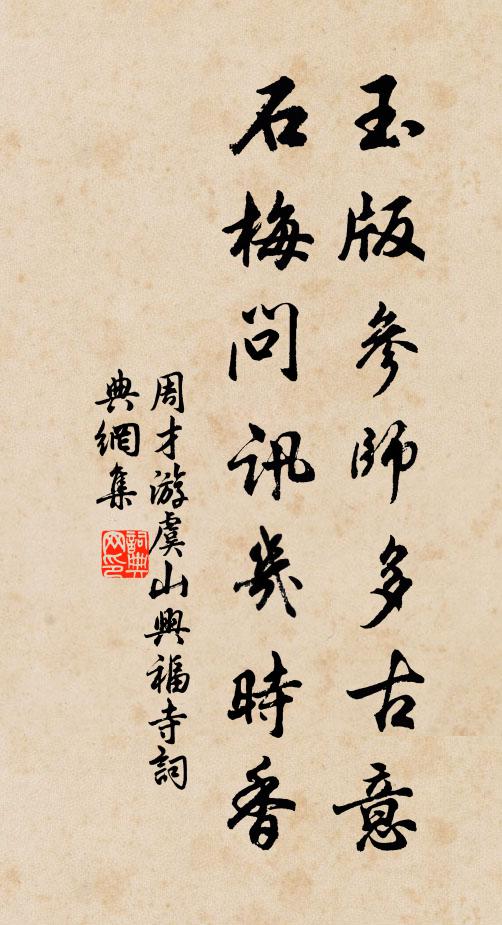 玉版參師多古意
石梅問訊幾時香
周才游虞山興福寺詞
典網集
詞典
网印